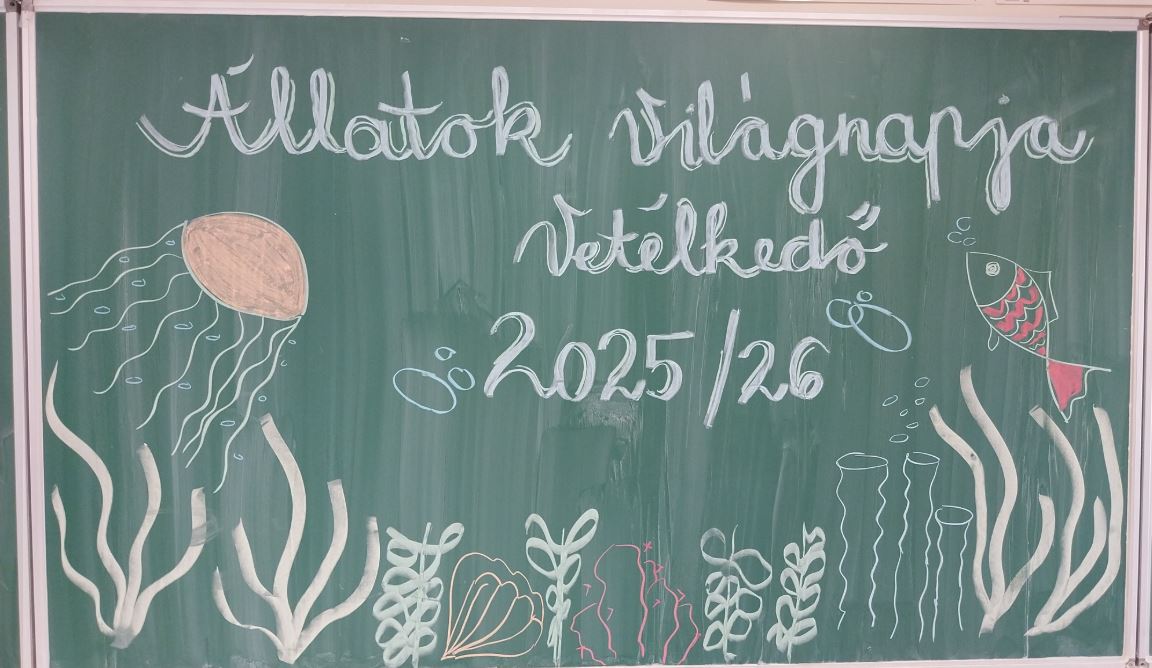 Állatok Világnapja
Vetélkedő
2025/26